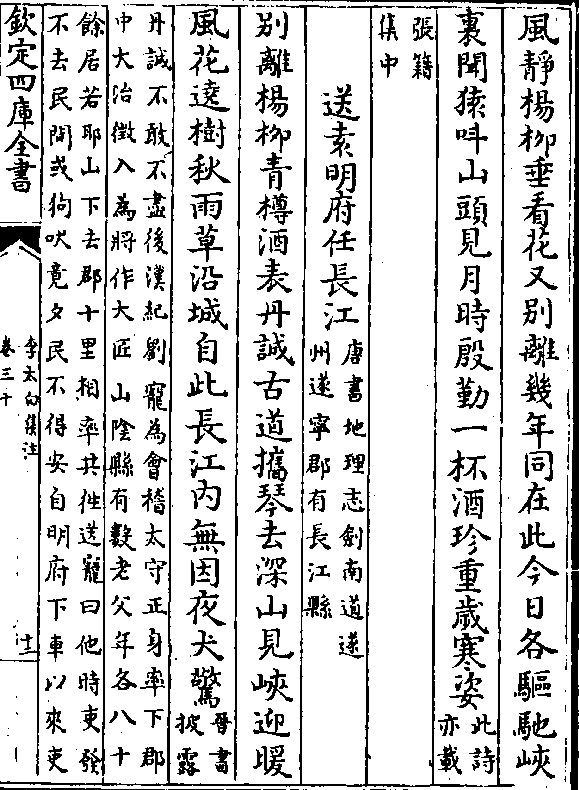 風靜楊柳垂看花又別離幾年同在此今日各驅馳峽
裏聞猿呌山頭見月時殷勤一杯酒珍重歲寒姿此詩
亦載
張籍
集中
送袁明府任長江唐書地理志劍南道遂
州遂寧郡有長江縣
別離楊柳青樽酒表丹誠古道攜琴去深山見峽迎暖
風花遶樹秋雨草沿城自此長江内無因夜犬驚晉書
披露
丹誠不敢不盡後漢紀劉寵為會稽太守正身率下郡
中大治徵入為將作大匠山陰縣有數老父年各八十
餘居若耶山下去郡十里相率共徃送寵曰他時吏發
不去民間或狗吠竟夕民不得安自明府下車以來吏
欽定四庫全書
李太白集注
卷三十
十二